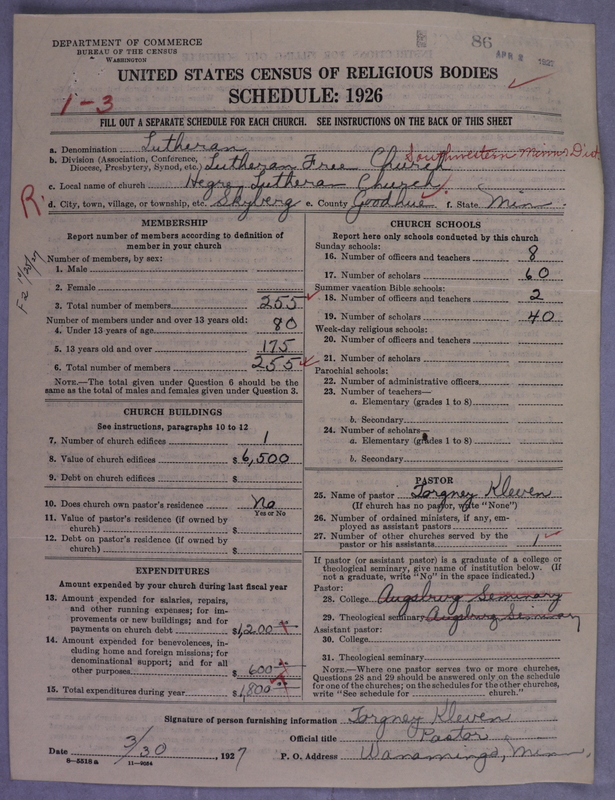 DEPARTMENT OF COMMERCE
BUREAU OF THE CENSUS
WASHINGTON
86
APR 2
UNITED STATES CENSUS OF RELIGIOUS BODIES
SCHEDULE: 1926
1-3
FILL OUT A SEPARATE SCHEDULE FOR EACH CHURCH. SEE INSTRUCTIONS ON THE BACK OF THIS SHEET
a. Denomination Lutheran
b. Division (Association, Conference, Diocese, Presbytery, Synod, etc.) Lutheran Free Church Southwestern Minn Dist.
c. Local name of church Hegre Lutheran Church
R.
d. City, town, village, or township, etc. Skyberg e. County Goodhue f. State Min
MEMBERSHIP
Report number of members according to definition of
member in your church
Number of members, by sex:
1. Male
2. Female
3. Total number of members 255
Number of members under and over 13 years old:
4. Under 13 years of age 80
5. 13 years old and over 175
6. Total number of members 255
NOTE.—The total given under Question 6 should be the
same as the total of males and females given under Question 3.
CHURCH BUILDINGS
See instructions, paragraphs 10 to 12
7. Number of church edifices 1
8. Value of church edifices $6,500
9. Debt on church edifices $
10. Does church own pastor's residence No
Yes or No
11. Value of pastor's residence (if owned by
church) $
12. Debt on pastor's residence (if owned by
church) $
EXPENDITURES
Amount expended by your church during last fiscal year
13. Amount expended for salaries, repairs,
and other running expenses; for im-
provements or new buildings; and for
payments on church debt $1,200
14. Amount expended for benevolences, in-
cluding home and foreign missions; for
denominational support; and for all
other purposes $600
15. Total expenditures during year $1,800
CHURCH SCHOOLS
Report here only schools conducted by this church
Sunday schools:
16. Number of officers and teachers 8
17. Number of scholars 60
Summer vacation Bible schools:
18. Number of officers and teachers 2
19. Number of scholars 40
Week-day religious schools:
20. Number of officers and teachers
21. Number of scholars
Parochial schools:
22. Number of administrative officers
23. Number of teachers—
a. Elementary (grades 1 to 8)
b. Secondary
24. Number of scholars—
a. Elementary (grades 1 to 8)
b. Secondary
PASTOR
25. Name of pastor Torgney Kleven
(If church has no pastor, write "None")
26. Number of ordained ministers, if any, em-
ployed as assistant pastors
27. Number of other churches served by the
pastor or his assistants 1
If pastor (or assistant pastor) is a graduate of a college or
theological seminary, give name of institution below. (If
not a graduate, write "No" in the space indicated.)
Pastor:
28. College Augsburg Seminary
29. Theological seminary Augsburg Seminary
Assistant pastor:
30. College
31. Theological seminary
NOTE.—Where one pastor serves two or more churches,
Questions 28 and 29 should be answered only on the schedule
for one of the churches; on the schedules for the other churches,
write "See schedule for church."
Signature of person furnishing information Torgney Kleven
Official title Pastor
Date 3/30, 1927 P. O. Address Wanamingo, Minn.
8-5518a 11-9034